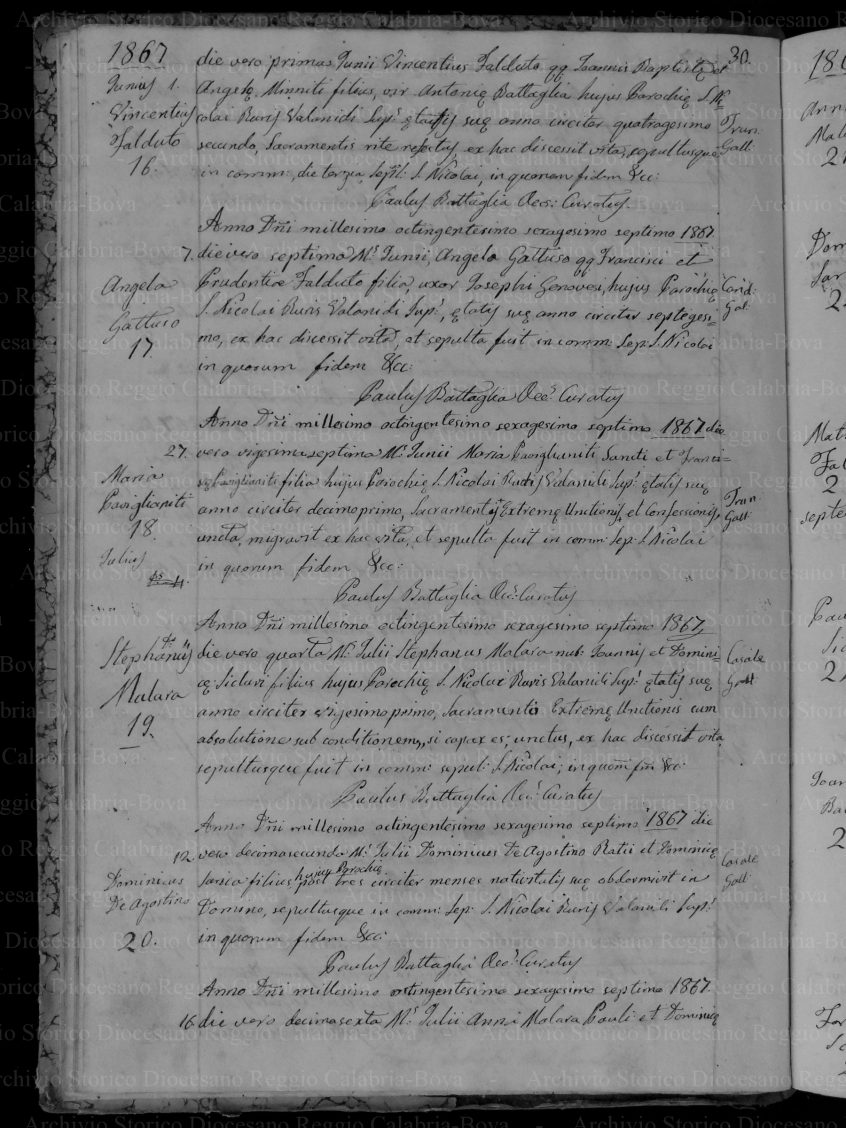 1867
30.
Junius 1.
Vincentius
Falduto
16.
die vero prima Junii Vincentius Falduto qq Joannis Baptistę et
Angelę Minniti filius, vir Antonię Battaglia hujus Parochię S. Ni
colai Ruris Valanidi Supi ętatis suę anno circiter quatragesimo
secundo, Sacramentis rite refectus ex hac discessit vita, sepultusque
in comm:, die tertia, Sepli: S. Nicolai, in quorum fidem &c:
Trun:
Gall:
Paulus Battaglia Oecs: Curatus
Anno Dñi millesimo octingentesimo sexagesimo septimo 1867
7.
Angela
Gattuso
17.
die vero septima Ms. Junii, Angela Gattuso qq Francisci et
Prudentiæ Falduto filia, uxor Josephi Genovesi, hujus Parochię
S. Nicolai Ruris Valanidi Supi, ętatis suę anno circiter septegesi-
mo, ex hac discessit vita, et sepulta fuit in comm: Sep: S. Nicolai
in quorum fidem &c:
Card:
Gal:
Paulus Battaglia Oecs: Curatus
Anno Dñi millesimo octingentesimo sexagesimo septimo 1867 die
27.
Maria
Pasiglianiti
18.
vero vigesima septima Ms. Junii Maria Pasiglianiti Sancti et Franci-
filia hujus Parochię S. Nicolai Ruris Valanidi Supi: ętatis suę
anno circiter decimoprimo, Sacramentis Extremę Unctionis, et Confessionis,
uncta, migravit ex hac vita, et sepulta fuit in comm: Sep: S. Nicolai
in quorum fidem &c:
Trun:
Gall:
Julius
Paulus Battaglia Oecs: Curatus
Anno Dñi millesimo octingentesimo sexagesimo septimo 1867,
Stephanus
Malara
19.
die vero quarta Ms. Julii Stephanus Malara Joannis et Domini-
cę Siclari filius hujus Parochię S. Nicolai Ruris Valanidi Supi ętatis suę
anno circiter vigesimoprimo, Sacramento Extremę Unctionis cum
absolutione sub conditionem, si capax es; unctus, ex hac discessit vita
sepultusque fuit in comm: sepul: S. Nicolai; in quorm fm &c:
Casale
Gall
Paulus Battaglia Oecs: Curatus
Anno Dñi millesimo octingentesimo sexagesimo septimo 1867 die
12.
Dominicus
De Agostino
20.
vero decimasecunda Ms. Julii Dominicus De Agostino Ratii et Dominicę
filius hujus Parochię post tres circiter menses nativitatis suę obdormivit in
Domino, sepultusque in comm: Sep: S. Nicolai Ruris Valanidi Supi:
in quorum fidem &c:
Casale
Gall:
Paulus Battaglia Oecs: Curatus
Anno Dñi millesimo octingentesimo sexagesimo septimo 1867.
16. die vero decimasexta Ms. Julii Anna Malara Pauli et Dominicę